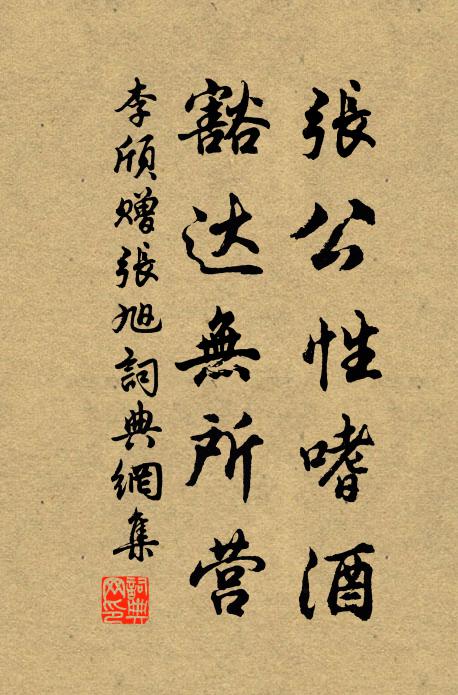 張公性嗜酒
豁达無所营
李頎贈張旭詞典網集
詞典網印